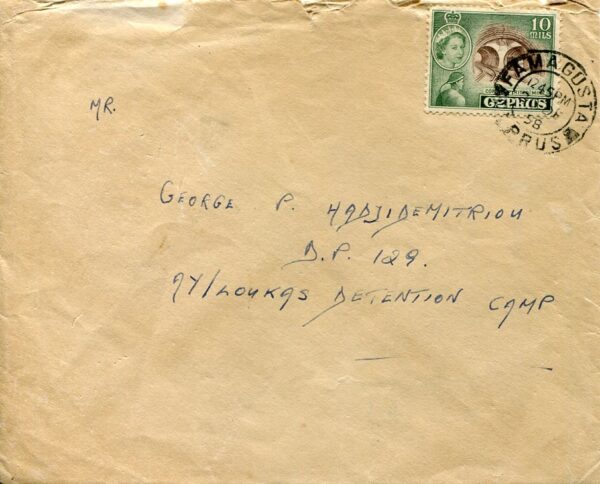 10
MILS
CYPRUS
FAMAGUSTA
1245PM
58
CYPRUS
MR.
GEORGE P. HADJIDEMITRIOU
D.P. 129.
AY/LOUKAS DETENTION CAMP